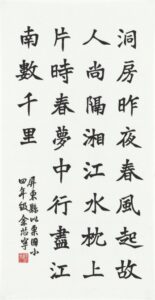 洞房昨夜春風起故
人尚隔湘江水枕上
片時春夢中行盡江
南數千里
屏東縣以栗國小
四年級